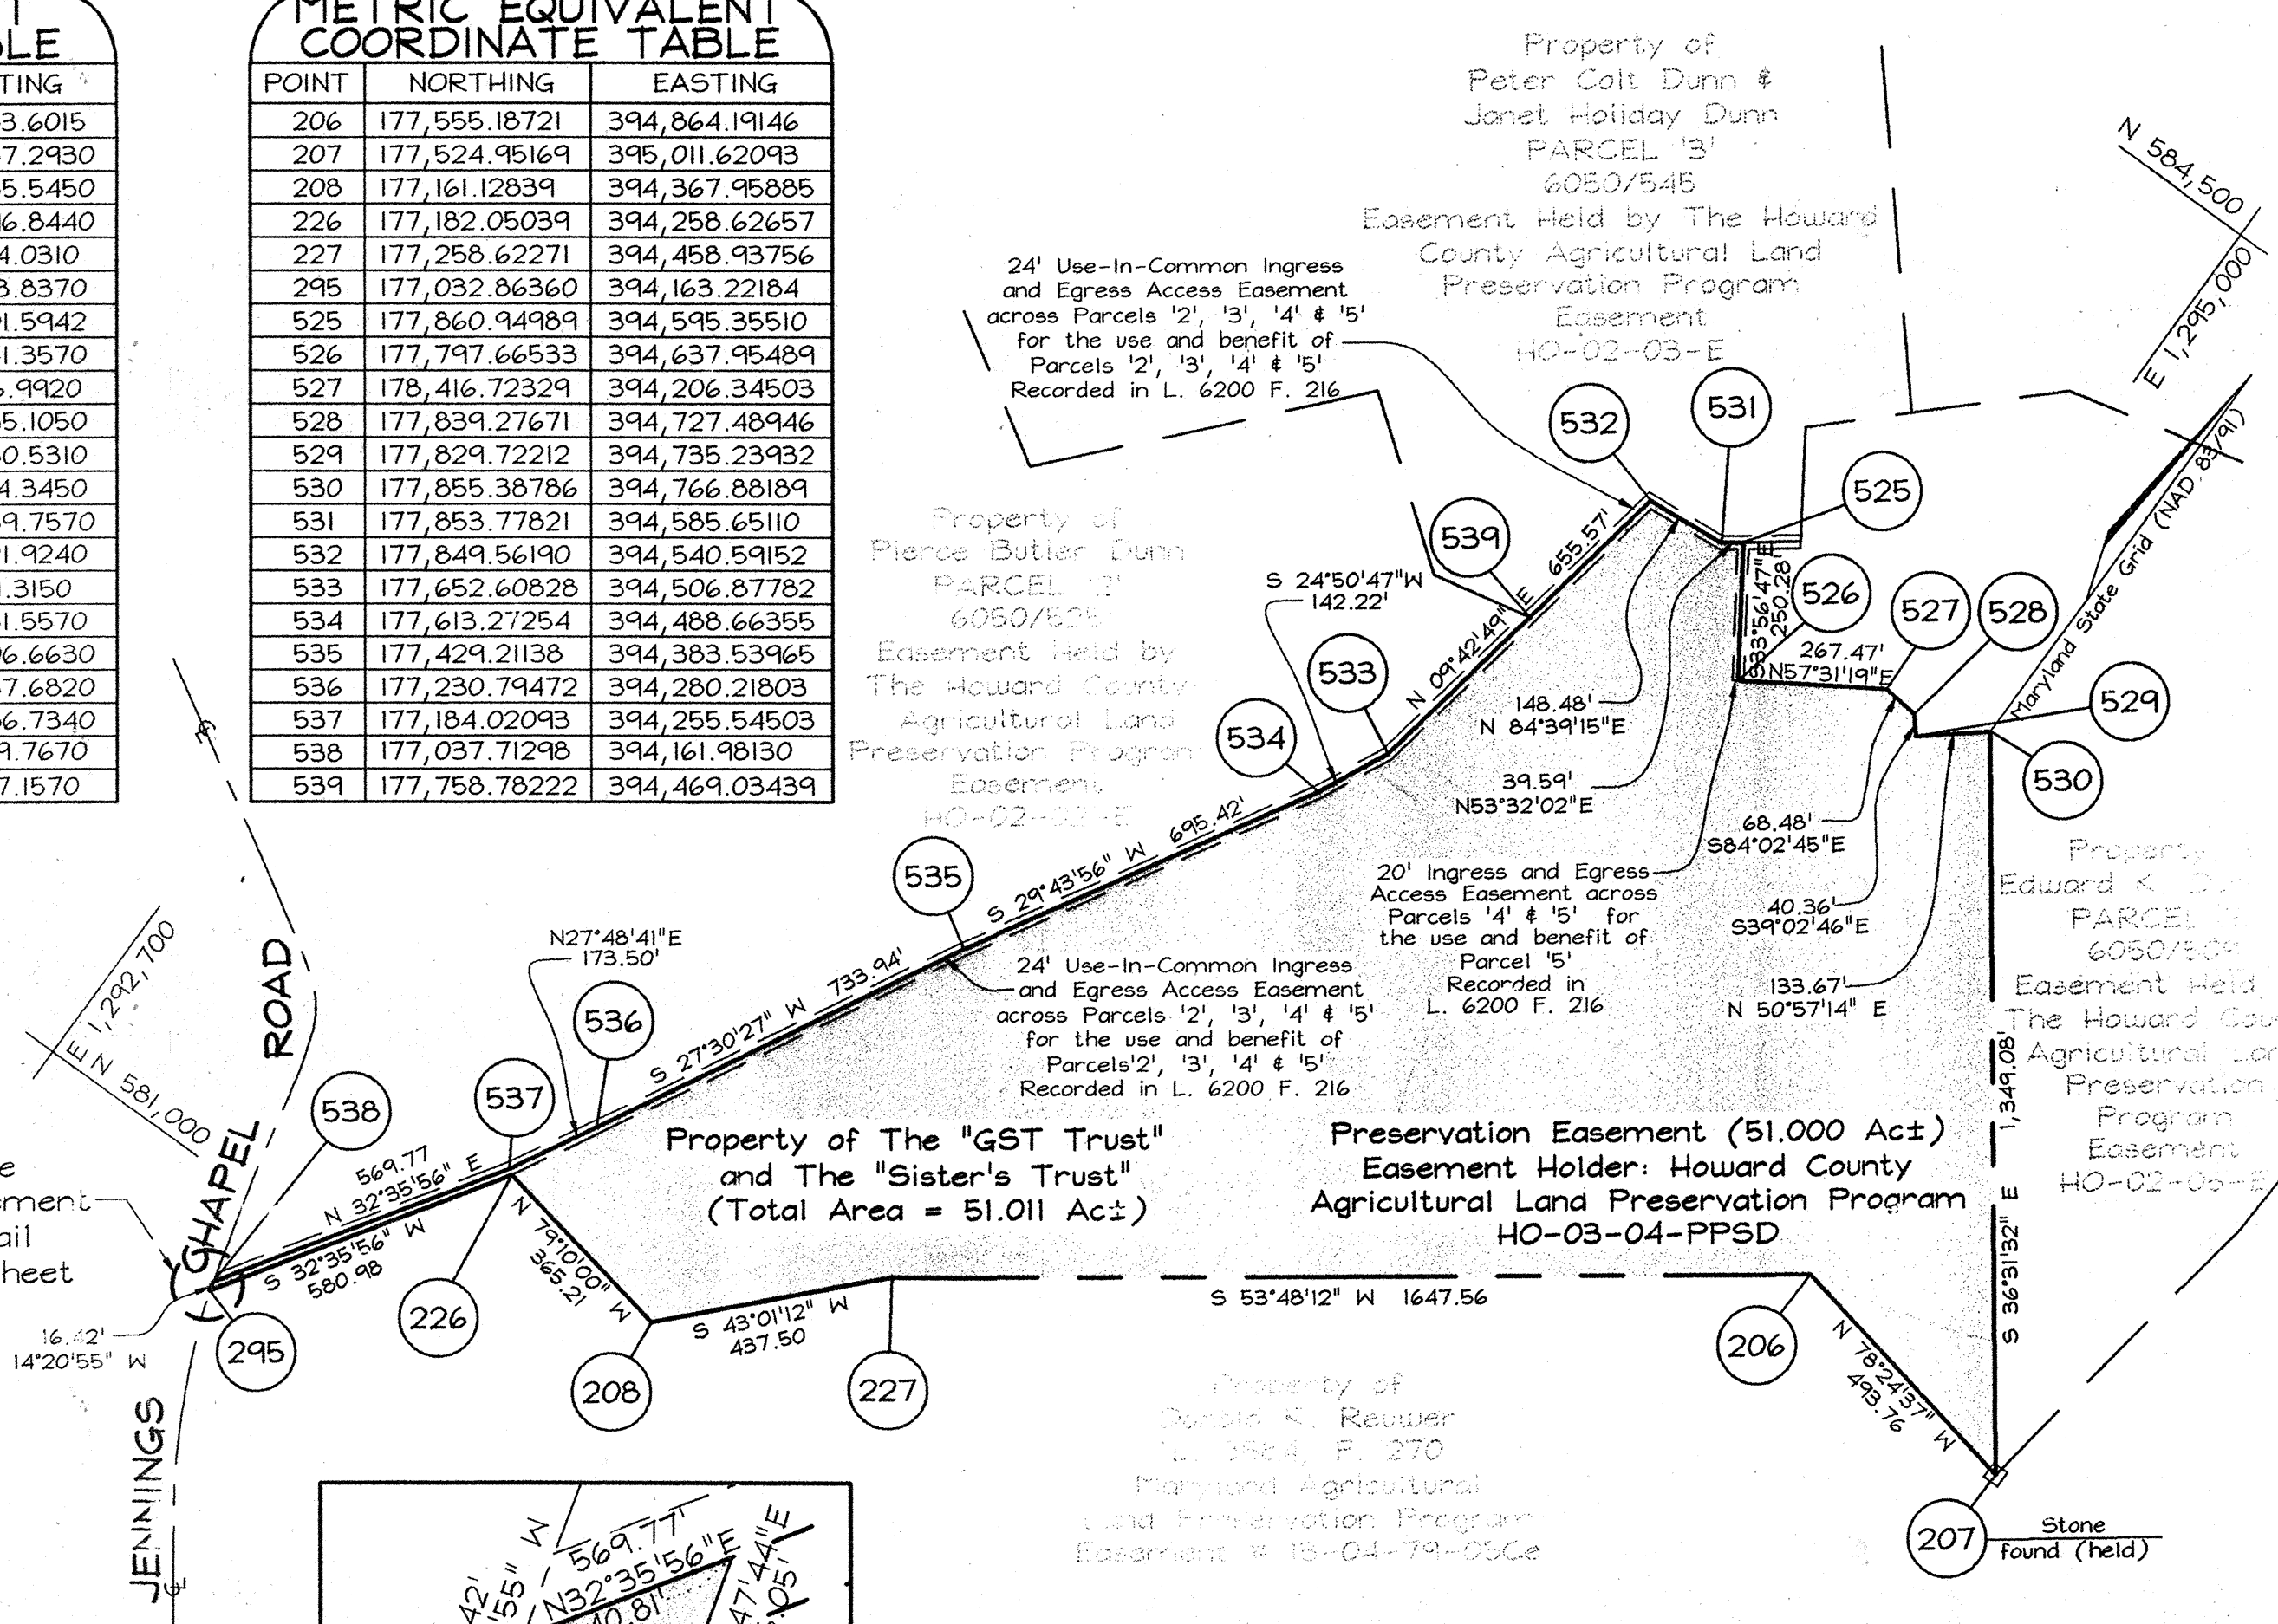 LE
TING
3.6015
7.2930
5.5450
6.8440
4.0310
3.8370
1.5942
1.3570
.9920
5.1050
0.5310
4.3450
9.7570
1.9240
.3150
1.5570
6.6630
7.6820
6.7340
9.7670
7.1570
METRIC EQUIVALENT
COORDINATE TABLE
POINT NORTHING EASTING
206 177,555.18721 394,864.19146
207 177,524.95169 395,011.62093
208 177,161.12839 394,367.95885
226 177,182.05039 394,258.62657
227 177,258.62271 394,458.93756
295 177,032.86360 394,163.22184
525 177,860.94989 394,595.35510
526 177,797.66533 394,637.95489
527 178,416.72329 394,206.34503
528 177,839.27671 394,727.48946
529 177,829.72212 394,735.23932
530 177,855.38786 394,766.88189
531 177,853.77821 394,585.65110
532 177,849.56190 394,540.59152
533 177,652.60828 394,506.87782
534 177,613.27254 394,488.66355
535 177,429.21138 394,383.53965
536 177,230.79472 394,280.21803
537 177,184.02093 394,255.54503
538 177,037.71298 394,161.98130
539 177,758.78222 394,469.03439
Property of
Peter Colt Dunn &
Janet Holiday Dunn
PARCEL '3'
6050/545
Easement Held by The Howard
County Agricultural Land
Preservation Program
Easement
HO-02-03-E
N 584,500
E 1,295,000
Maryland State Grid (NAD 83/91)
24' Use-In-Common Ingress
and Egress Access Easement
across Parcels '2', '3', '4' & '5'
for the use and benefit of
Parcels '2', '3', '4' & '5'
Recorded in L. 6200 F. 216
532
531
525
539
526
527
528
529
530
533
534
535
536
537
538
Property of
Pierce Butler Dunn
PARCEL
6050/525
Easement Held by
The Howard County
Agricultural Land
Preservation Program
Easement
S 24°50'47"W
142.22'
N 09°42'49" E 655.57'
S33°56'47"E
250.28'
267.47'
N57°31'19"E
148.48'
N 84°39'15"E
39.59'
N53°32'02"E
68.48'
S84°02'45"E
40.36'
S39°02'46"E
133.67'
N 50°57'14" E
20' Ingress and Egress
Access Easement across
Parcels '4' & '5' for
the use and benefit of
Parcel '5'
Recorded in
L. 6200 F. 216
S 29°43'56" W 695.42'
24' Use-In-Common Ingress
and Egress Access Easement
across Parcels '2', '3', '4' & '5'
for the use and benefit of
Parcels'2', '3', '4' & '5'
Recorded in L. 6200 F. 216
N27°48'41"E
173.50'
S 27°30'27" W 733.94'
Property
Edward K.
PARCEL
Easement Held
The Howard
Agricultural
Preservation
Program
Easement
HO-02-05-E
E 1,292,700
N 581,000
CHAPEL ROAD
JENNINGS
569.77
N 32°35'56" E
S 32°35'56" W
580.98
16.42'
14°20'55" W
295
226
208
227
206
207
Stone
found (held)
N 79°10'00" W
365.21
S 43°01'12" W
437.50
S 53°48'12" W 1647.56
N 78°24'37" W
493.76
S 36°31'32" E 1,349.08'
Property of The "GST Trust"
and The "Sister's Trust"
(Total Area = 51.011 Ac±)
Preservation Easement (51.000 Ac±)
Easement Holder: Howard County
Agricultural Land Preservation Program
HO-03-04-PPSD
Property of
Donald R. Reuwer
F. 270
Maryland Agricultural
Land Preservation Program
e
ement
ail
heet
42'
55" W
569.77'
N32°35'56"E
0.81'
47'44"E
.05'